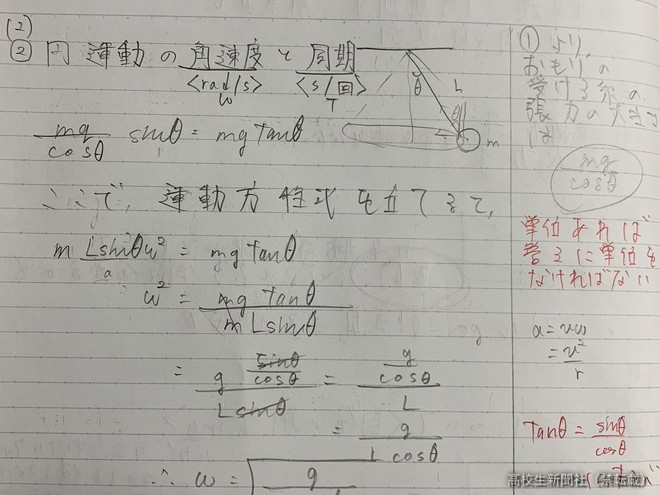 (2)
② 円運動の角速度と周期
<rad/s> <s/回>
ω T
θ L
m
mg/cosθ sinθ = mg tanθ
ここで、運動方程式を立てると、
m Lsinθω² = mg tanθ
a
ω² = mg tanθ / m L sinθ
= g sinθ/cosθ / L sinθ = g/cosθ / L
= g / L cosθ
∴ ω = √g
① より、
おもりの
受ける糸の
張力の大きさ
は
mg/cosθ
単位あれば
答えに単位を
なければない
a = vω
= v²/r
Tanθ = sinθ/cosθ
高校生新聞社（禁転載）